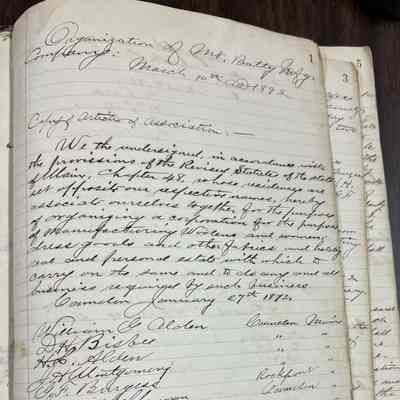 Organization of Mt. Batty Mfg.
Company:
March 10th AD 1892
1
Copy of Articles of Association:—
We the undersigned, in accordance with
the provisions of the Revised Statutes of the State
of Maine, Chapter 48, whose residences are
set opposite our respective names, hereby
associate ourselves together for the purpose
of organizing a corporation for the purpose
of manufacturing Woolens and womens
dress goods and other fabrics and holding
real and personal estate with which to
carry on the same and to do any and all
business required by such business.
Camden January 27th 1892.
William G. Alden Camden Maine
D. H. Bisbee " "
H. L. Alden " "
Montgomery " "
Burgess Rockport "
Camden "
3
5